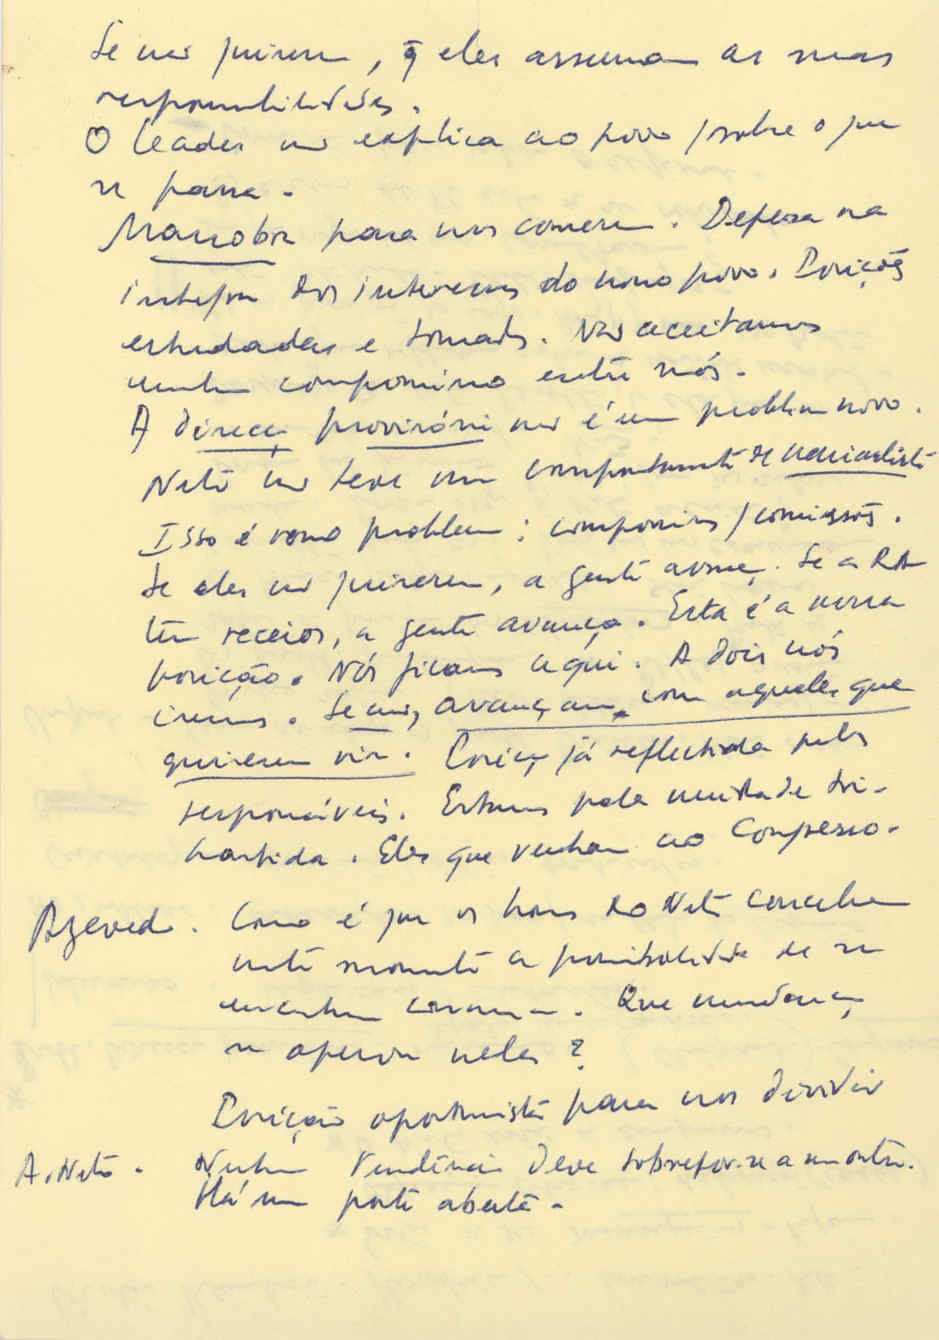 Se não quiserem, q̄ eles assumam as suas
responsabilidades.
O leader não explica ao povo / sobre o que
se passa.
Manobra para nos comerem. Defesa na
íntegra dos interesses do nosso povo. Posições
estudadas e tomadas. Não aceitamos
nenhum compromisso entre nós.
A direcç provisória não é um problema novo.
Neto não teve um comportamento de nacionalista
Isso é vosso problema: compromisso / comissões.
Se eles não quiserem, a gente avança. Se a RA
têm receios, a gente avança. Esta é a nossa
posição. Nós ficamos aqui. A dois nós
iremos. Se não, avançam com aqueles que
quiserem vir. Posição já reflectida pelos
responsáveis. Estamos pela unidade tri-
partida. Eles que venham ao Congresso.
Azevedo. Como é que os homens do Neto concebem
neste momento a possibilidade de se
encontrem connosco. Que mudança
se operou neles?
Posição oportunista para nos dividir
A. Neto. Nenhuma tendência deve sobrepor-se a uma outra.
Há uma porta aberta.